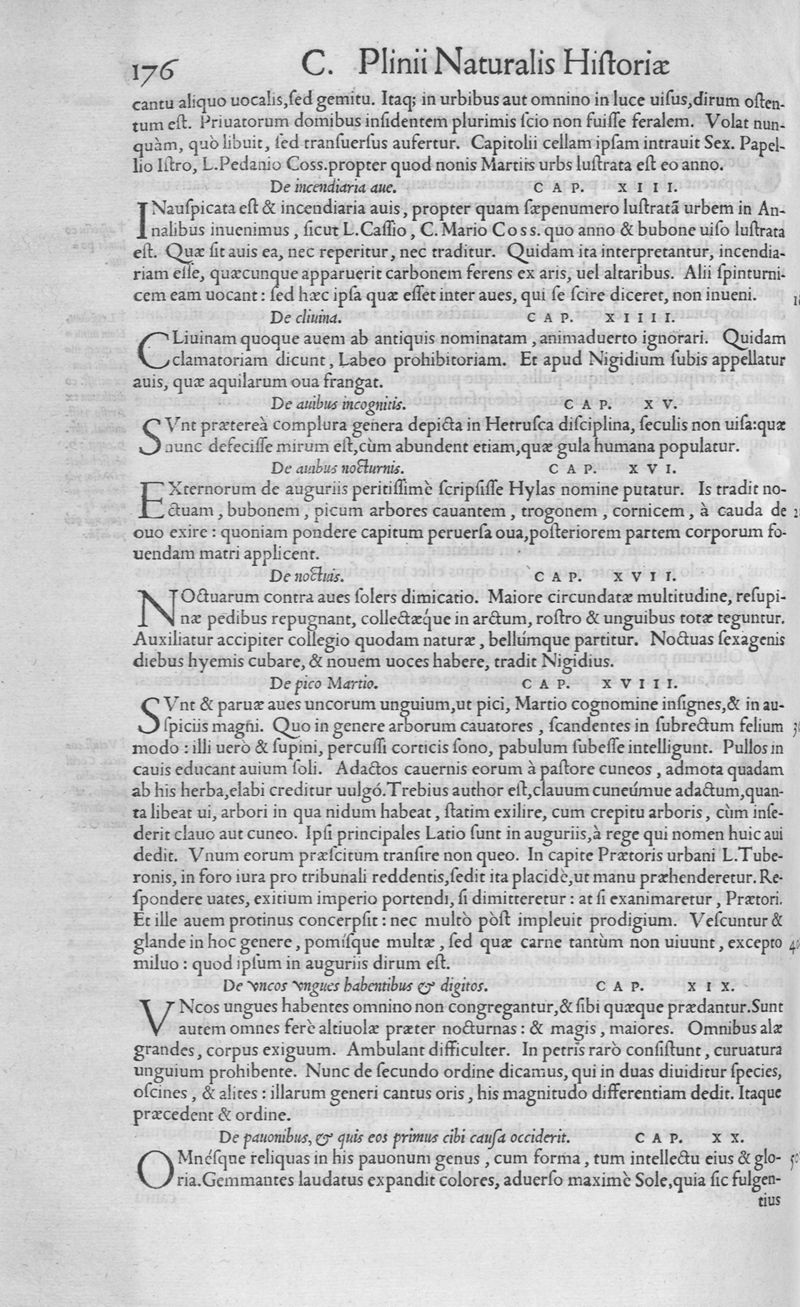 176 C. Plinii Naturalis Hiſtoriæ
cantu aliquo uocalis,ſed gemitu. Itaq; in urbibus aut omnino in luce uiſus,dirum oſten-
tum eſt. Priuatorum domibus inſidentem plurimis ſcio non fuiſſe feralem. Volat nun-
quàm, quò libuit, ſed tranſuerſus aufertur. Capitolii cellam ipſam intrauit Sex. Papel-
lio Iſtro, L.Pedanio Coss.propter quod nonis Martiis urbs luſtrata eſt eo anno.
De incendiaria aue. CAP. XIII.
INauſpicata eſt & incendiaria auis, propter quam ſæpenumero luſtratā urbem in An-
nalibus inuenimus, ſicut L.Caſſio, C. Mario Coss. quo anno & bubone uiſo luſtrata
eſt. Quæ ſit auis ea, nec reperitur, nec traditur. Quidam ita interpretantur, incendia-
riam eſſe, quæcunque apparuerit carbonem ferens ex aris, uel altaribus. Alii ſpinturni-
cem eam uocant: ſed hæc ipſa quæ eſſet inter aues, qui ſe ſcire diceret, non inueni.
De cliuina. CAP. XIIII.
CLiuinam quoque auem ab antiquis nominatam, animaduerto ignorari. Quidam
clamatoriam dicunt, Labeo prohibitoriam. Et apud Nigidium ſubis appellatur
auis, quæ aquilarum oua frangat.
De auibus incognitis. CAP. XV.
SVnt præterea complura genera depicta in Hetruſca diſciplina, ſeculis non uiſa:quæ
nunc defeciſſe mirum eſt,cùm abundent etiam,quæ gula humana populatur.
De auibus nocturnis. CAP. XVI.
EXternorum de auguriis peritiſſimè ſcripſiſſe Hylas nomine putatur. Is tradit no-
ctuam, bubonem, picum arbores cauantem, trogonem, cornicem, à cauda de
ouo exire: quoniam pondere capitum peruerſa oua,poſteriorem partem corporum fo-
uendam matri applicent.
De noctuis. CAP. XVII.
NOctuarum contra aues ſolers dimicatio. Maiore circundatæ multitudine, reſupi-
næ pedibus repugnant, collectæque in arctum, roſtro & unguibus totæ teguntur.
Auxiliatur accipiter collegio quodam naturæ, bellúmque partitur. Noctuas ſexagenis
diebus hyemis cubare, & nouem uoces habere, tradit Nigidius.
De pico Martio. CAP. XVIII.
SVnt & paruæ aues uncorum unguium,ut pici, Martio cognomine inſignes,& in au-
ſpiciis magni. Quo in genere arborum cauatores, ſcandentes in ſubrectum felium
modo: illi uerò & ſupini, percuſſi corticis ſono, pabulum ſubeſſe intelligunt. Pullos in
cauis educant auium ſoli. Adactos cauernis eorum à paſtore cuneos, admota quadam
ab his herba,elabi creditur uulgó.Trebius author eſt,clauum cuneúmue adactum,quan-
ta libeat ui, arbori in qua nidum habeat, ſtatim exilire, cum crepitu arboris, cùm inſe-
derit clauo aut cuneo. Ipſi principales Latio ſunt in auguriis,à rege qui nomen huic aui
dedit. Vnum eorum præſcitum tranſire non queo. In capite Prætoris urbani L.Tube-
ronis, in foro iura pro tribunali reddentis,ſedit ita placidè,ut manu præhenderetur.Re-
ſpondere uates, exitium imperio portendi, ſi dimitteretur: at ſi exanimaretur, Prætori.
Et ille auem protinus concerpſit: nec multò pòſt impleuit prodigium. Veſcuntur &
glande in hoc genere, pomiſque multæ, ſed quæ carne tantùm non uiuunt, excepto
miluo: quod ipſum in auguriis dirum eſt.
De vncos vngues habentibus & digitos. CAP. XIX.
VNcos ungues habentes omnino non congregantur,& ſibi quæque prædantur.Sunt
autem omnes ferè altiuolæ præter nocturnas: & magis, maiores. Omnibus alæ
grandes, corpus exiguum. Ambulant difficulter. In petris rarò conſiſtunt, curuatura
unguium prohibente. Nunc de ſecundo ordine dicamus, qui in duas diuiditur ſpecies,
oſcines, & alites: illarum generi cantus oris, his magnitudo differentiam dedit. Itaque
præcedent & ordine.
De pauonibus, & quis eos primus cibi cauſa occiderit. CAP. XX.
OMnéſque reliquas in his pauonum genus, cum forma, tum intellectu eius & glo-
ria.Gemmantes laudatus expandit colores, aduerſo maximè Sole,quia ſic fulgen-
tius